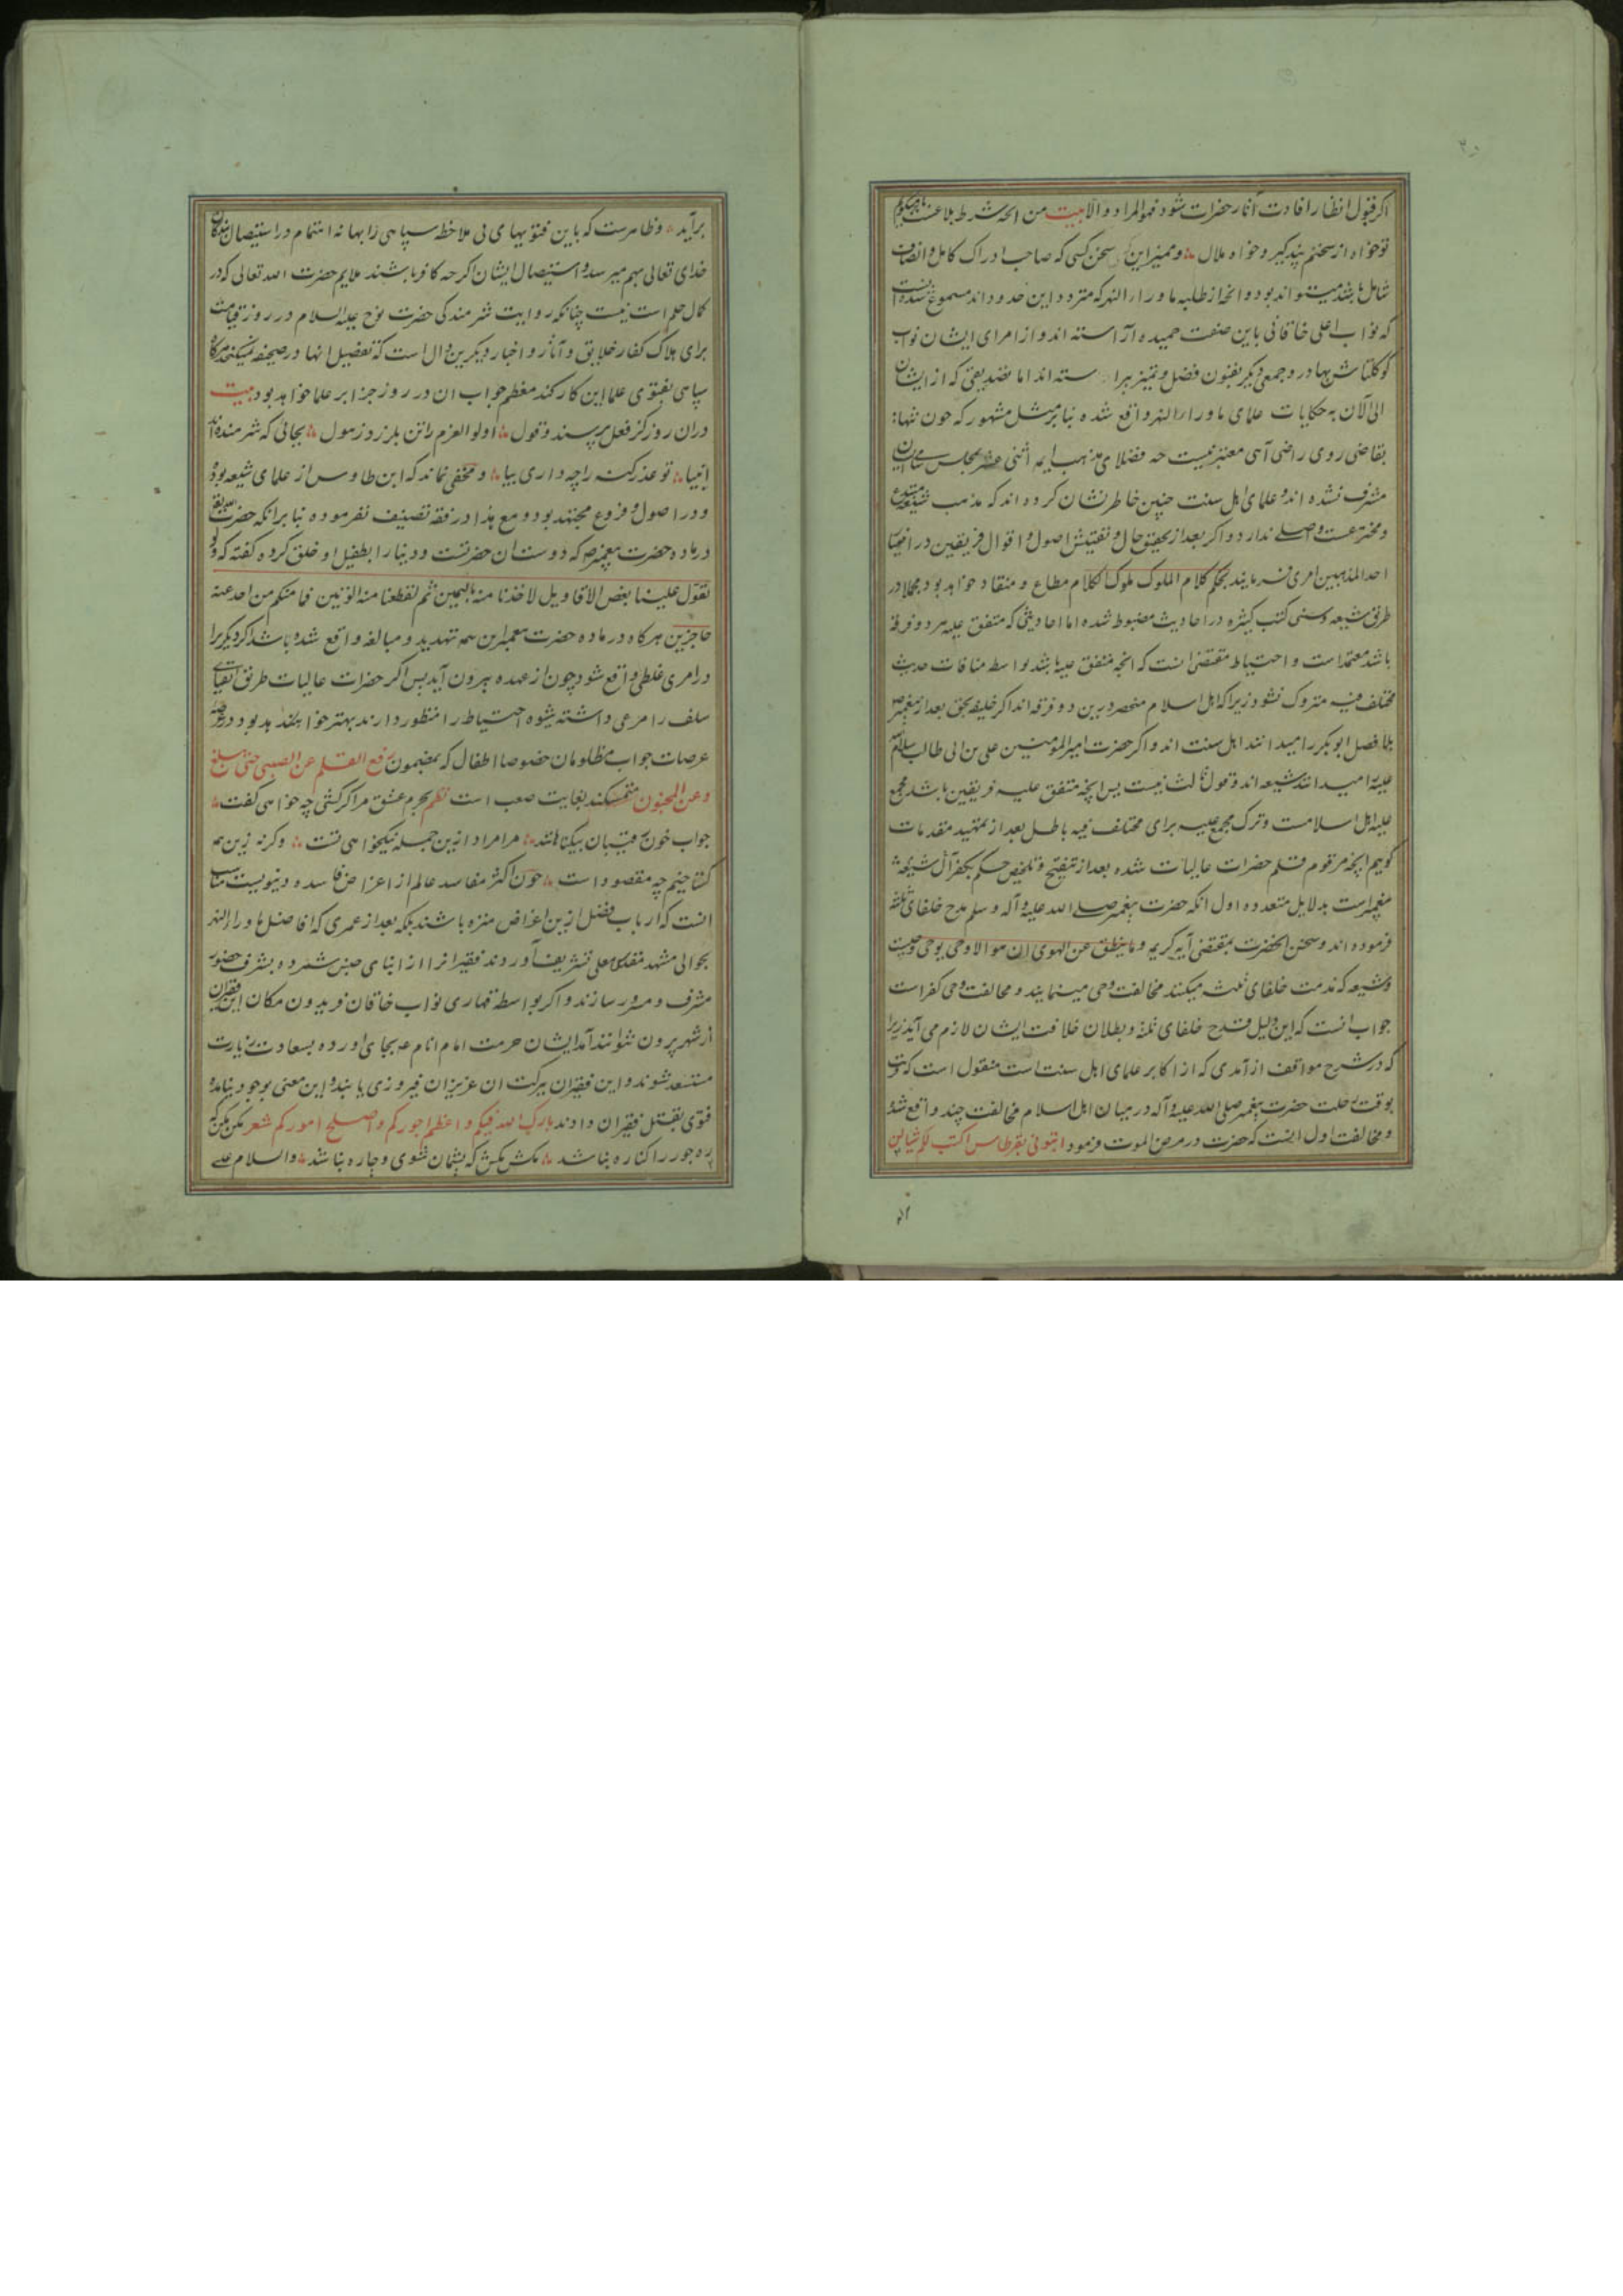 اکر قبول انظار افادت آثار حضرات شود فهو المراد والا بیت من انچه شرط بلاغست با تو میکویم
تو خواه از سخنم پند کیر و خواه ملال ۞ و ممیز این سخن کسی که صاحب ادراک کامل و انصاف
شامل باشد میتواند بود و انچه از طلبه ماوراء النهر که متردد این حدود اند مسموع شده انست
که نواب اعلی خاقانی باین صفت حمیده آراسته اند و از امرای ایشان نواب
کوکلتاش بهادر و جمعی دیکر بفنون فضل و تمیز پیراسته اند اما تصدیقی که از ایشان
الی الآن به حکایات علمای ماوراء النهر واقع شده بنابر مثل مشهور که چون تنها
بقاضی روی راضی آیی معتبر نیست چه فضلای مذهب ایمه اثنی عشر بمجلس سامی ایشان
مشرف نشده اند و علمای اهل سنت چنین خاطر نشان کرده اند که مذهب شیعه مبتدع
و مخترعست و اصلی ندارد و اکر بعد از تحقیق حال و تفتیش اصول و اقوال فریقین در اختیار
احد المذهبین امری فرمایند بحکم کلام الملوک ملوک الکلام مطاع و منقاد خواهد بود مجملا در
طرق شیعه و سنی کتب کثیره در احادیث مضبوط شده اما احادیثی که متفق علیه هر دو فرقه
باشد معتمد است و احتیاط مقتضی انست که انچه متفق علیه باشد بواسطه منافات حدیث
مختلف فیه متروک نشود زیرا که اهل اسلام منحصر درین دو فرقه اند اکر خلیفه بحق بعد از پیغمبر ص
بلا فصل ابو بکر را میدانند اهل سنت اند و اکر حضرت امیر المومنین علی بن ابی طالب سلام الله
علیه را میدانند شیعه اند و قول ثالث نیست پس انچه متفق علیه فریقین باشد مجمع
علیه اهل اسلامست و ترک مجمع علیه برای مختلف فیه باطل بعد از تمهید مقدمات
کوییم انچه مرقوم قلم حضرات عالیات شده بعد از تنقیح و تلخیص حکم بکفر آل شیعه
پیغمبر است بدلایل متعدده اول انکه حضرت پیغمبر صلی الله علیه و آله و سلم مدح خلفای ثلثه
فرموده اند و سخن انحضرت بمقتضی آیه کریمه و ما ینطق عن الهوی ان هو الا وحی یوحی وحیست
و شیعه که مذمت خلفای ثلثه میکنند مخالفت وحی مینمایند و مخالفت وحی کفر است
جواب انست که این دلیل قدح خلفای ثلثه و بطلان خلافت ایشان لازم می آید زیرا
که در شرح مواقف از آمدی که از اکابر علمای اهل سنت است منقول است که
بوقت رحلت حضرت پیغمبر صلی الله علیه و آله در میان اهل اسلام مخالفت چند واقع شد
و مخالفت اول اینست که حضرت در مرض الموت فرمود ایتونی بقرطاس اکتب لکم شیا لن
برآید ۞ و ظاهرست که باین فتویهای بی ملاحظه سپاهی را بهانه اهتمام در استیصال بندکان
خدای تعالی بهم میرسد و استیصال ایشان اکرچه کافر باشند ملایم حضرت الله تعالی که در
کمال حلم است نیست چنانکه روایت شرمندکی حضرت نوح علیه السلام در روز قیامت
برای هلاک کفار خلایق و آثار و اخبار دیکر برین دال است که تفصیل انها در صحیفه نمیکنجد هرکاه
سپاهی بفتوی علما این کار کند معظم جواب ان در روز جزا بر علما خواهد بود بیت
دران روز کز فعل پرسند و قول ۞ اولوا العزم را تن بلرزد ز هول ۞ بجائی که شرمنده اند
انبیا ۞ تو عذر کنه را چه داری بیا ۞ و مخفی نماند که ابن طاوس از علمای شیعه بود
و در اصول و فروع مجتهد بود و مع هذا در فقه تصنیف نفرموده بنابر انکه حضرت
در ماده حضرت پیغمبر ص که دوست ان حضرتست و دنیا را بطفیل او خلق کرده کفته که ولو
تقول علینا بعض الاقاویل لاخذنا منه بالیمین ثم لقطعنا منه الوتین فما منکم من احد عنه
حاجزین هرکاه در ماده حضرت پیغمبر این همه تهدید و مبالغه واقع شده باشد اکر دیکری را
در امری غلطی واقع شود چون از عهده بیرون آید پس اکر حضرات عالیات طریق اتقیای
سلف را مرعی داشته شیوه احتیاط را منظور دارند بهتر خواهد بود در
عرصات جواب مظلومان خصوصا اطفال که بمضمون رفع القلم عن الصبی حتی یبلغ
و عن المجنون متمسکند بغایت صعب است نظم بجرم عشق مرا کر کشی چه خواهی کفت ۞
جواب خون رقیبان بیکناه ۞ مرا مراد ازین جمله نیکخواهی تست ۞ و کرنه زین همه
کستاخیم چه مقصود است ۞ چون اکثر مفاسد عالم از اعراض فاسده دنیویست مناسب
انست که ارباب فضل ازین اغراض منزه باشند بلکه بعد از عمری که افاضل ماوراء النهر
بحوالی مشهد مقدس معلی تشریف آوردند فقیر انرا از ابنای جنس شمرده بشرف حضور
مشرف و مسرور سازند و اکر بواسطه قهاری نواب خاقان فریدون مکان این فقیران
از شهر بیرون نتوانند آمد ایشان حرمت امام انام ع بجای اورده بسعادت زیارت
مستسعد شوند و این فقیران ببرکت ان عزیزان فیروزی یابند و این معنی بوجود نیامده
فتوی بقتل فقیران دادند بارک الله فیکم و اعظم اجورکم و اصلح امورکم شعر مکن مکن که
ره جور را کناره نباشد ۞ مکش مکش که پشیمان شوی و چاره نباشد ۞ والسلام علی